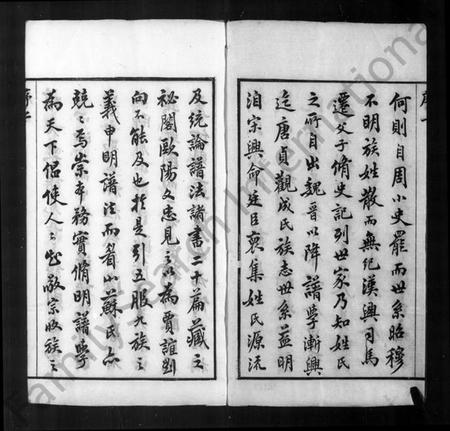 何則自周小史罷而世系昭穆
不明族姓散而無紀漢興司馬
遷父子脩史記列世家乃知姓氏
之所自出魏晉以降譜學漸興
迄唐貞觀成氏族志世系益明
洎宋興命廷臣裒集姓氏源流
及統論譜法諸書二十篇藏之
祕閣歐陽文忠見之以為賈誼劉
向不能及也於是引五服九族之
義申明譜注而眉山蘇氏亦
競競焉崇本務實脩明譜學
為天下侶使人人知敬宗收族之
序一
序二
FamilySearch International